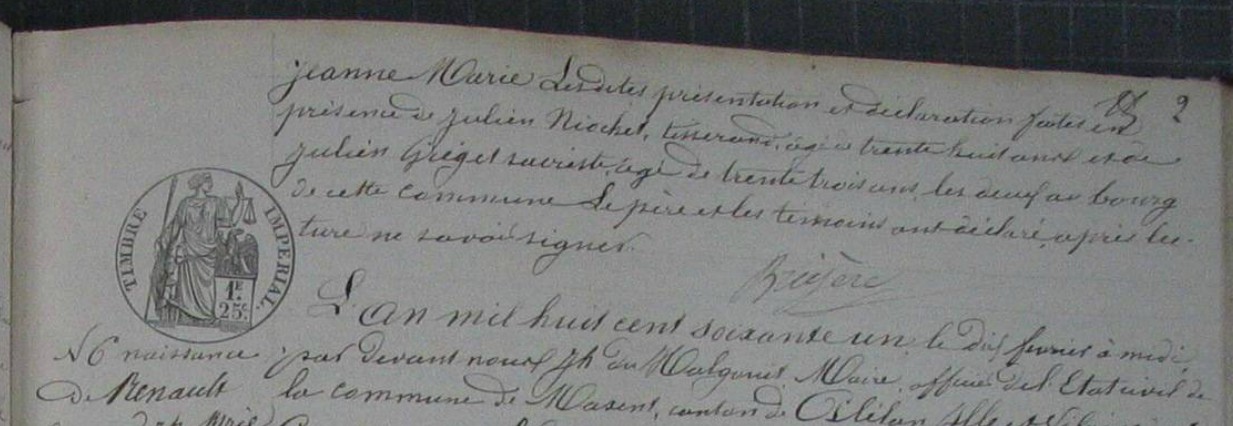 2
Jeanne Marie Lesdites présentation et déclaration faites en
présence de Julien Niochet, tisserand, agé de trente huit ans et de
Julien Gréget sacriste, agé de trente trois ans, les deux au bourg
de cette commune Le père et les temoins ont déclaré, après lec-
ture ne savoir signer.
TIMBRE IMPERIAL.
1F
25c
L'an mil huit cent soixante un, le dix fevrier à midi
N 6 naissance
par devant nous Jh du Maire, officier de l'Etat civil de
De Renault
la commune de Maxent, canton de